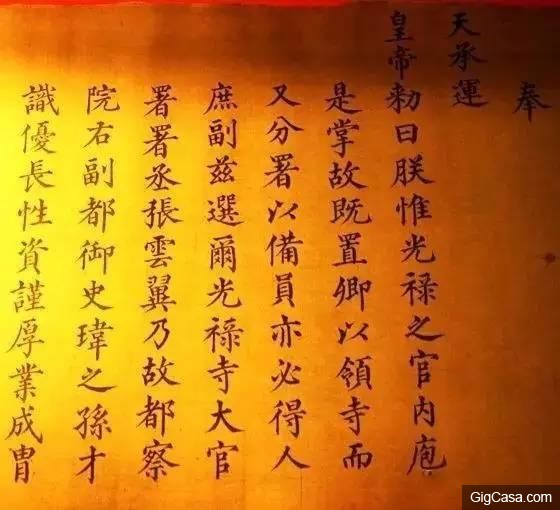 奉
天承運
皇帝勅曰朕惟光禄之官内庖
是掌故既置卿以領寺而
又分署以備員亦必得人
庶副兹選爾光禄寺大官
署署丞張雲翼乃故都察
院右副都御史瑋之孫才
識優長性資謹厚業成胄
GigCasa.com